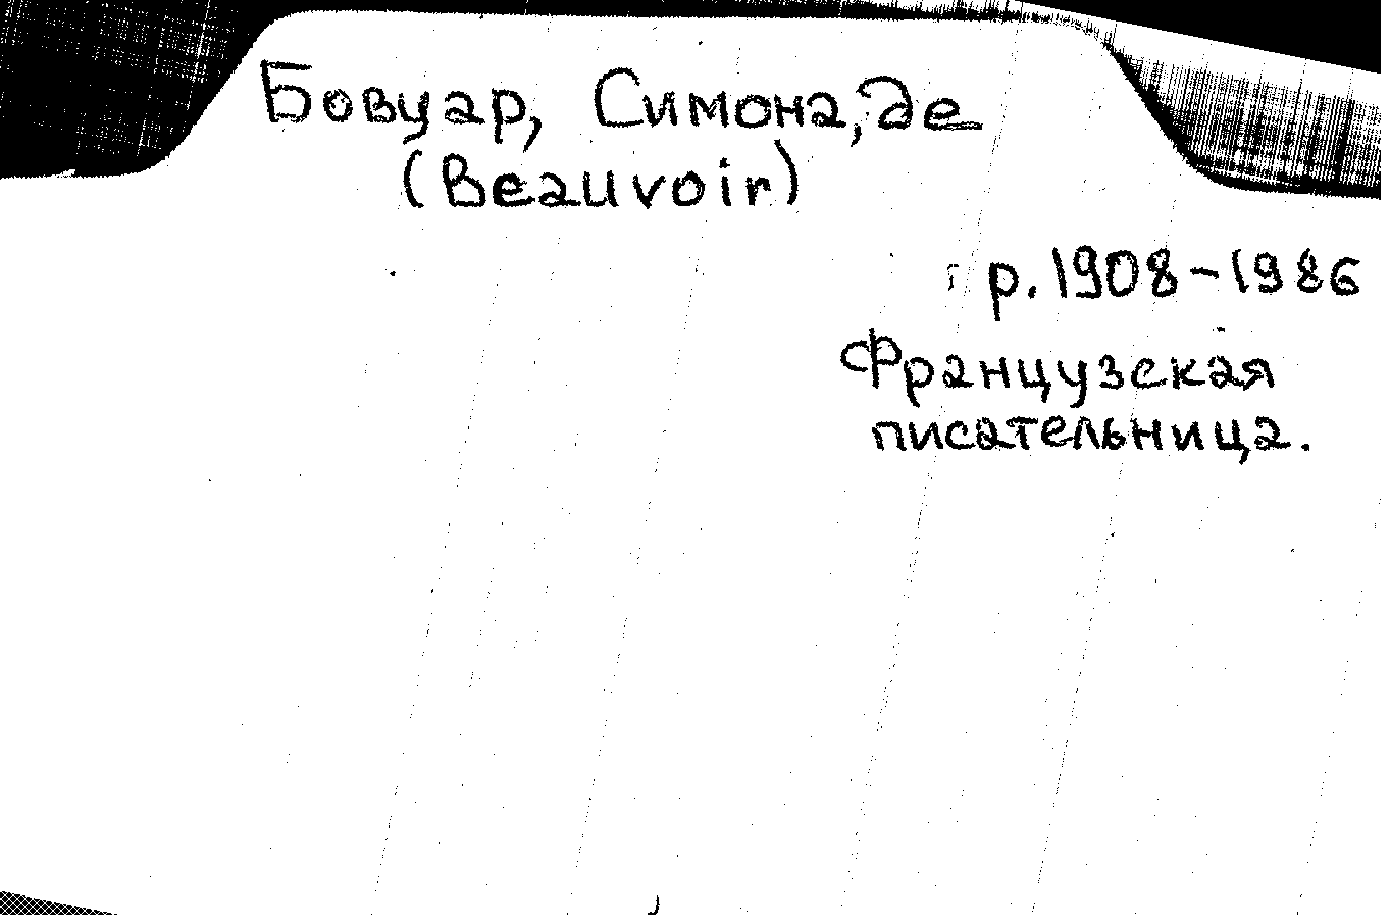 Бовуар, Симона, де
(Beauvoir)
р. 1908-1986
Французская
писательница.